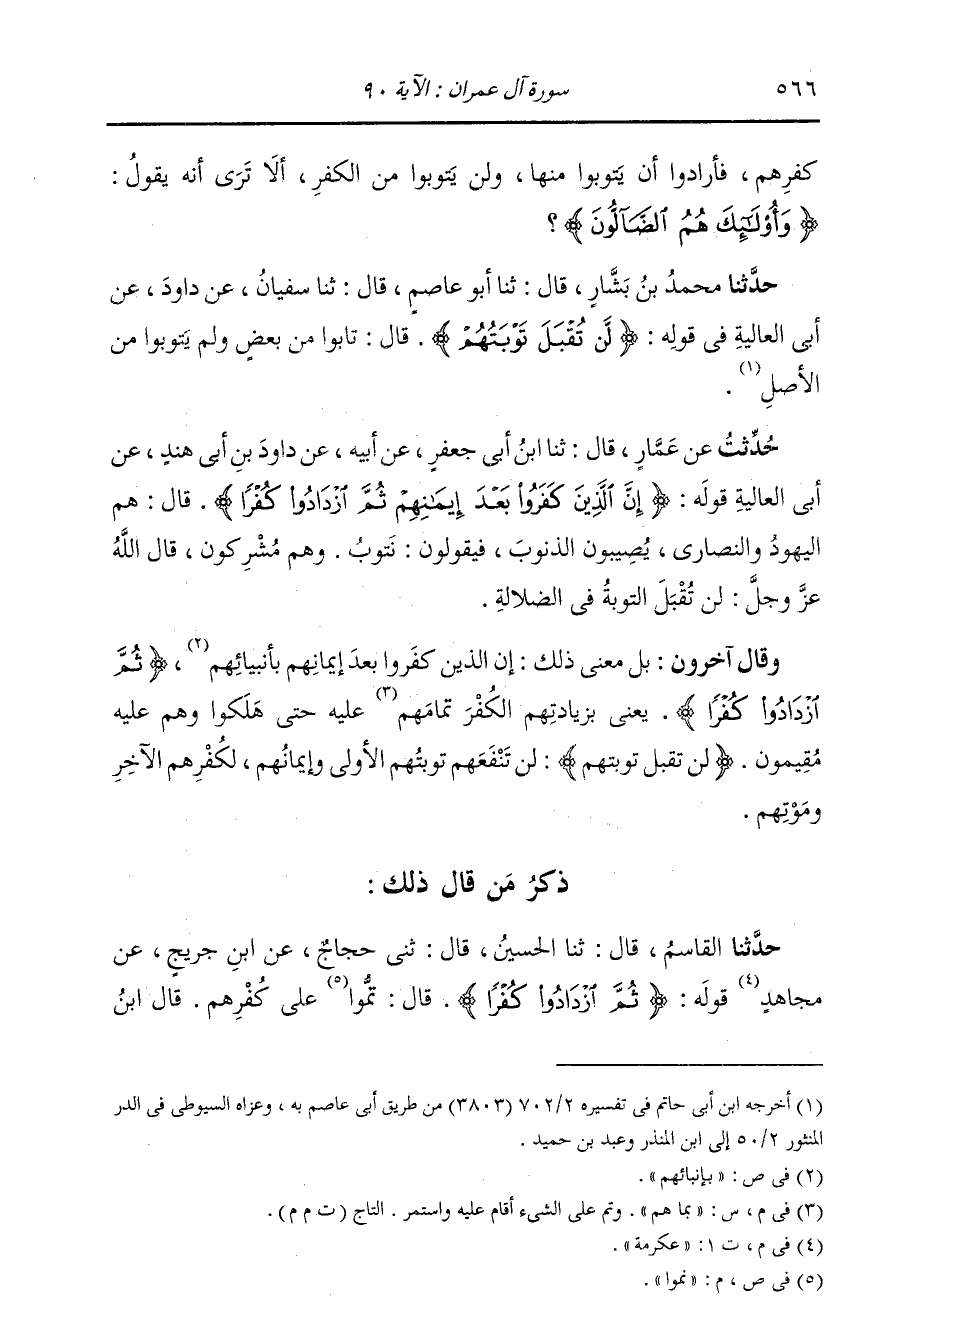 ٥٦٦ سورة آل عمران : الآية ٩٠
كفرِهم ، فأرادوا أن يَتوبوا منها ، ولن يَتوبوا من الكفرِ ، ألَا تَرَى أنه يقولُ :
﴿ وَأُوْلَٰٓئِكَ هُمُ ٱلضَّآلُّونَ ﴾ ؟
حدَّثنا محمدُ بنُ بَشَّارٍ ، قال : ثنا أبو عاصمٍ ، قال : ثنا سفيانُ ، عن داودَ ، عن
أبى العاليةِ فى قولِه : ﴿ لَّن تُقْبَلَ تَوْبَتُهُمْ ﴾ . قال : تابوا من بعضٍ ولم يَتوبوا من
الأصلِ (١) .
حُدِّثتُ عن عَمَّارٍ ، قال : ثنا ابنُ أبى جعفرٍ ، عن أبيه ، عن داودَ بنِ أبى هندٍ ، عن
أبى العاليةِ قولَه : ﴿ إِنَّ ٱلَّذِينَ كَفَرُواْ بَعْدَ إِيمَٰنِهِمْ ثُمَّ ٱزْدَادُواْ كُفْرًا ﴾ . قال : هم
اليهودُ والنصارى ، يُصِيبون الذنوبَ ، فيقولون : نَتوبُ . وهم مُشْرِكون ، قال اللَّهُ
عزَّ وجلَّ : لن تُقْبَلَ التوبةُ فى الضلالةِ .
وقال آخرون : بل معنى ذلك : إن الذين كفَروا بعدَ إيمانِهم بأنبيائِهم (٢) ، ﴿ ثُمَّ
ٱزْدَادُواْ كُفْرًا ﴾ . يعنى بزيادتِهم الكُفْرَ تمامَهم (٣) عليه حتى هَلَكوا وهم عليه
مُقِيمون . ﴿ لن تقبل توبتهم ﴾ : لن تَنْفَعَهم توبتُهم الأولى وإيمانُهم ، لكُفْرِهم الآخِرِ
ومَوْتِهم .
ذكرُ مَن قال ذلك :
حدَّثنا القاسمُ ، قال : ثنا الحسينُ ، قال : ثنى حجاجٌ ، عن ابنِ جريجٍ ، عن
مجاهدٍ (٤) قولَه : ﴿ ثُمَّ ٱزْدَادُواْ كُفْرًا ﴾ . قال : تَمُّوا (٥) على كُفْرِهم . قال ابنُ
(١) أخرجه ابن أبى حاتم فى تفسيره ٧٠٢/٢ (٣٨٠٣) من طريق أبى عاصم به ، وعزاه السيوطى فى الدر
المنثور ٥٠/٢ إلى ابن المنذر وعبد بن حميد .
(٢) فى ص : « بإنبائهم » .
(٣) فى م ، س : « بما هم » . وتم على الشىء أقام عليه واستمر . التاج ( ت م م ) .
(٤) فى م ، ت ١ : « عكرمة » .
(٥) فى ص ، م : « نموا » .